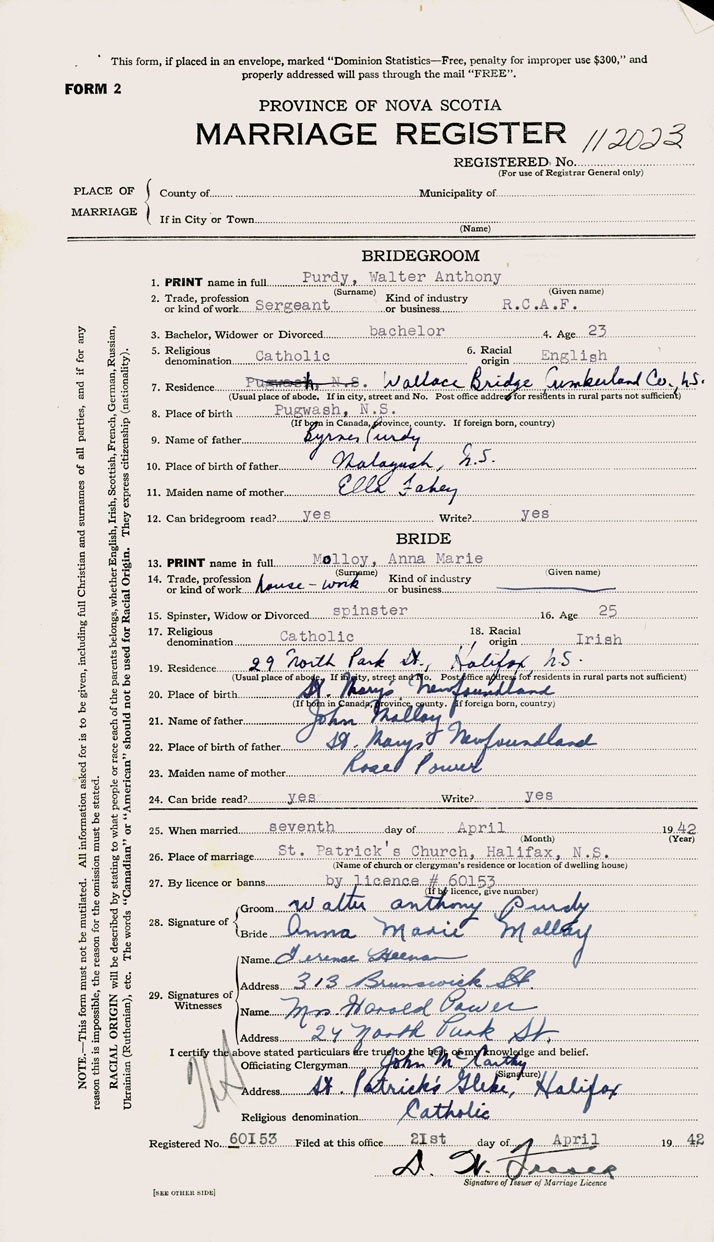 This form, if placed in an envelope, marked "Dominion Statistics—Free, penalty for improper use $300," and
properly addressed will pass through the mail "FREE".
FORM 2
PROVINCE OF NOVA SCOTIA
MARRIAGE REGISTER 112023
REGISTERED No.
(For use of Registrar General only)
PLACE OF MARRIAGE
County of Municipality of
If in City or Town
(Name)
BRIDEGROOM
1. PRINT name in full Purdy, Walter Anthony
(Surname) (Given name)
2. Trade, profession or kind of work Sergeant Kind of industry or business R.C.A.F.
3. Bachelor, Widower or Divorced bachelor 4. Age 23
5. Religious denomination Catholic 6. Racial origin English
7. Residence Pugwash, N.S. Wallace Bridge Cumberland Co., N.S.
(Usual place of abode. If in city, street and No. Post office address for residents in rural parts not sufficient)
8. Place of birth Pugwash, N.S.
(If born in Canada, province, county. If foreign born, country)
9. Name of father Byrnes Purdy
10. Place of birth of father Malagash, N.S.
11. Maiden name of mother Ella Fahey
12. Can bridegroom read? yes Write? yes
BRIDE
13. PRINT name in full Molloy, Anna Marie
(Surname) (Given name)
14. Trade, profession or kind of work house-work Kind of industry or business
15. Spinster, Widow or Divorced spinster 16. Age 25
17. Religious denomination Catholic 18. Racial origin Irish
19. Residence 29 North Park St., Halifax N.S.
(Usual place of abode. If in city, street and No. Post office address for residents in rural parts not sufficient)
20. Place of birth St. Marys Newfoundland
(If born in Canada, province, county. If foreign born, country)
21. Name of father John Molloy
22. Place of birth of father St. Marys Newfoundland
23. Maiden name of mother Rose Power
24. Can bride read? yes Write? yes
25. When married seventh day of April 1942
(Month) (Year)
26. Place of marriage St. Patrick's Church, Halifax, N.S.
(Name of church or clergyman's residence or location of dwelling house)
27. By licence or banns by licence # 60153
(If by licence, give number)
28. Signature of Groom Walter Anthony Purdy
Bride Anna Marie Molloy
29. Signatures of Witnesses
Name Terence Heenan
Address 313 Brunswick St.
Name Mrs. Harold Power
Address 29 North Park St.
I certify the above stated particulars are true to the best of my knowledge and belief.
Officiating Clergyman John McCarthy
(Signature)
Address St. Patrick's Glebe, Halifax
Religious denomination Catholic
Registered No. 60153 Filed at this office 21st day of April 1942
D. W. Fraser
Signature of Issuer of Marriage Licence
[SEE OTHER SIDE]
NOTE.—This form must not be mutilated. All information asked for is to be given, including full Christian and surnames of all parties, and if for any
reason this is impossible, the reason for the omission must be stated.
RACIAL ORIGIN will be described by stating to what people or race each of the parents belongs, whether English, Irish, Scottish, French, German, Russian,
Ukrainian (Ruthenian), etc. The words "Canadian" or "American" should not be used for Racial Origin. They express citizenship (nationality).